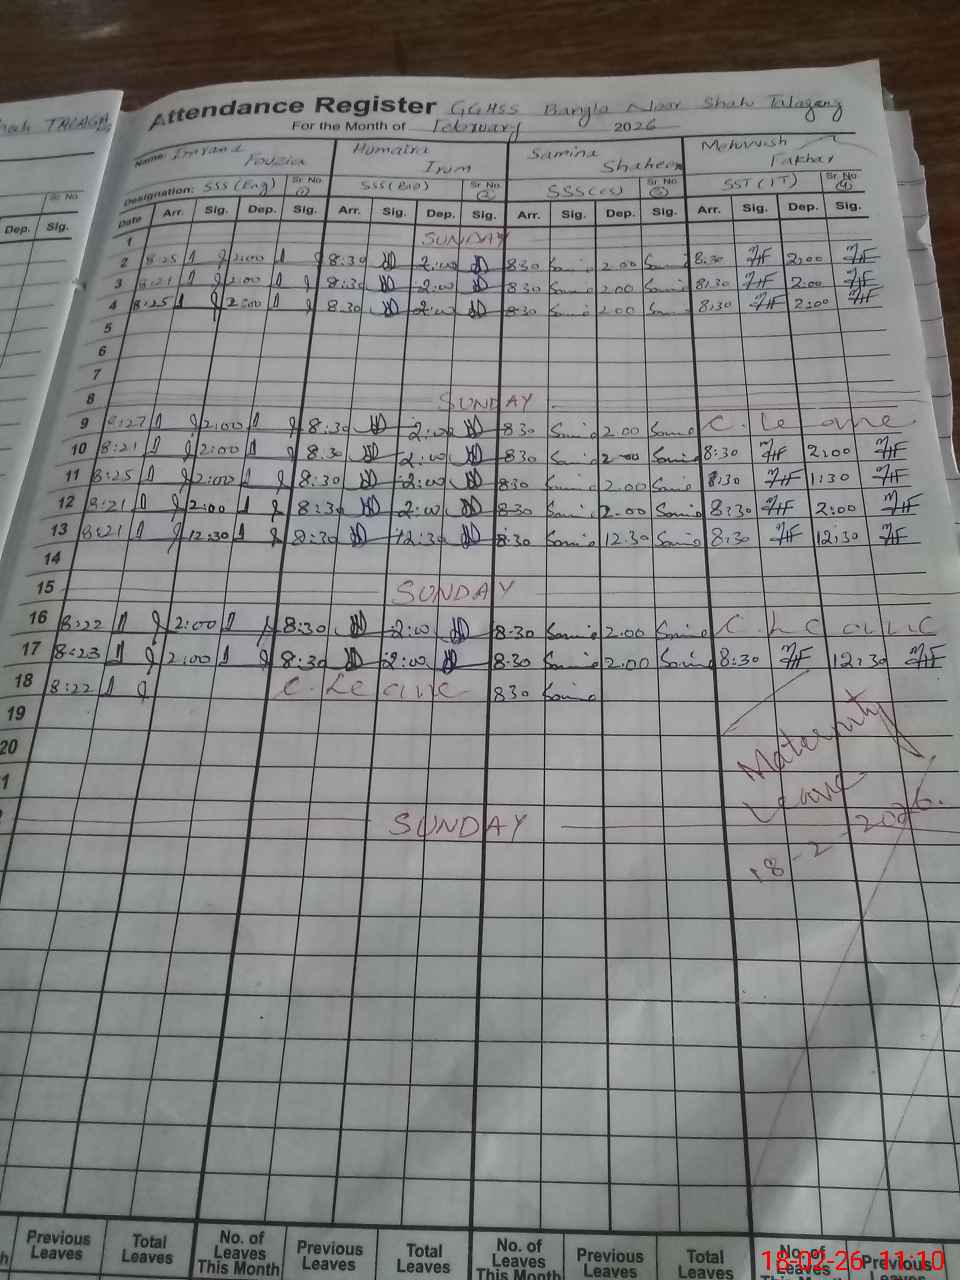 TALAGA
Attendance Register GGHSS Bangla Noor Shah Talagang
For the Month of February 2026
Name: Fouzia Humaira Irum Samina Shaheen Mehwish Fakhar
Designation: SSS (Eng) Sr. No. (1) SSS (Bio) Sr. No. (2) SSS (CS) Sr. No. (3) SST (IT) Sr. No. (4)
Sr. No.
Dep. Sig.
Date Arr. Sig. Dep. Sig. Arr. Sig. Dep. Sig. Arr. Sig. Dep. Sig. Arr. Sig. Dep. Sig.
1 SUNDAY
2 8:25 2:00 8:30 2:00 8:30 2:00 8:30 2:00
3 8:21 2:00 8:30 2:00 8:30 2:00 8:30 2:00
4 8:25 2:00 8:30 2:00 8:30 2:00 8:30 2:00
5
6
7
8 SUNDAY
9 8:27 2:00 8:30 2:00 8:30 2:00 C. Leave
10 8:21 2:00 8:30 2:00 8:30 2:00 8:30 2:00
11 8:25 2:00 8:30 2:00 8:30 2:00 8:30 1:30
12 8:21 2:00 8:30 2:00 8:30 2:00 8:30 2:00
13 8:21 12:30 8:30 12:30 8:30 12:30 8:30 12:30
14
15 SUNDAY
16 8:22 2:00 8:30 2:00 8:30 2:00 C. Leave
17 8:23 2:00 8:30 2:00 8:30 2:00 8:30 12:30
18 8:22 C. Leave 8:30
19
20
1
SUNDAY
Maternity
Leave
18-2-2026.
Previous Leaves Total Leaves No. of Leaves This Month Previous Leaves Total Leaves No. of Leaves This Month Previous Leaves Total Leaves No. of Leaves Previous Leaves
18-02-26 11:10